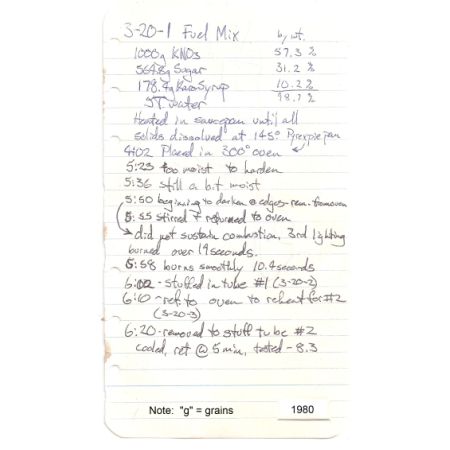 3-20-1 Fuel Mix by wt.
1000g KNO3 57.3 %
564.8g Sugar 31.2 %
178.4g Karo Syrup 10.2 %
5T water 98.7 %
Heated in saucepan until all
solids dissolved at 145° Pyrex pie pan
4:02 Placed in 300° oven
5:23 too moist to harden
5:36 still a bit moist
5:50 beginning to darken @ edges-rem. from oven
5:55 stirred & returned to oven
did not sustain combustion, 3rd lighting
burned over 19 seconds.
5:58 burns smoothly 10.4 seconds
6:02 - stuffed in tube #1 (3-20-2)
6:10 - ret. to oven to reheat for #2
(3-20-3)
6:20 - removed to stuff tube #2
cooled, ret @ 5 min, tested - 8.3
Note: "g" = grains 1980